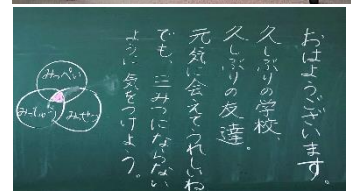 おはようございます。
久しぶりの学校、
久しぶりの友達。
元気に会えてうれしいね
でも、三みつにならない
ように気をつけよう。
みっぺい
みっしゅう
みせつ